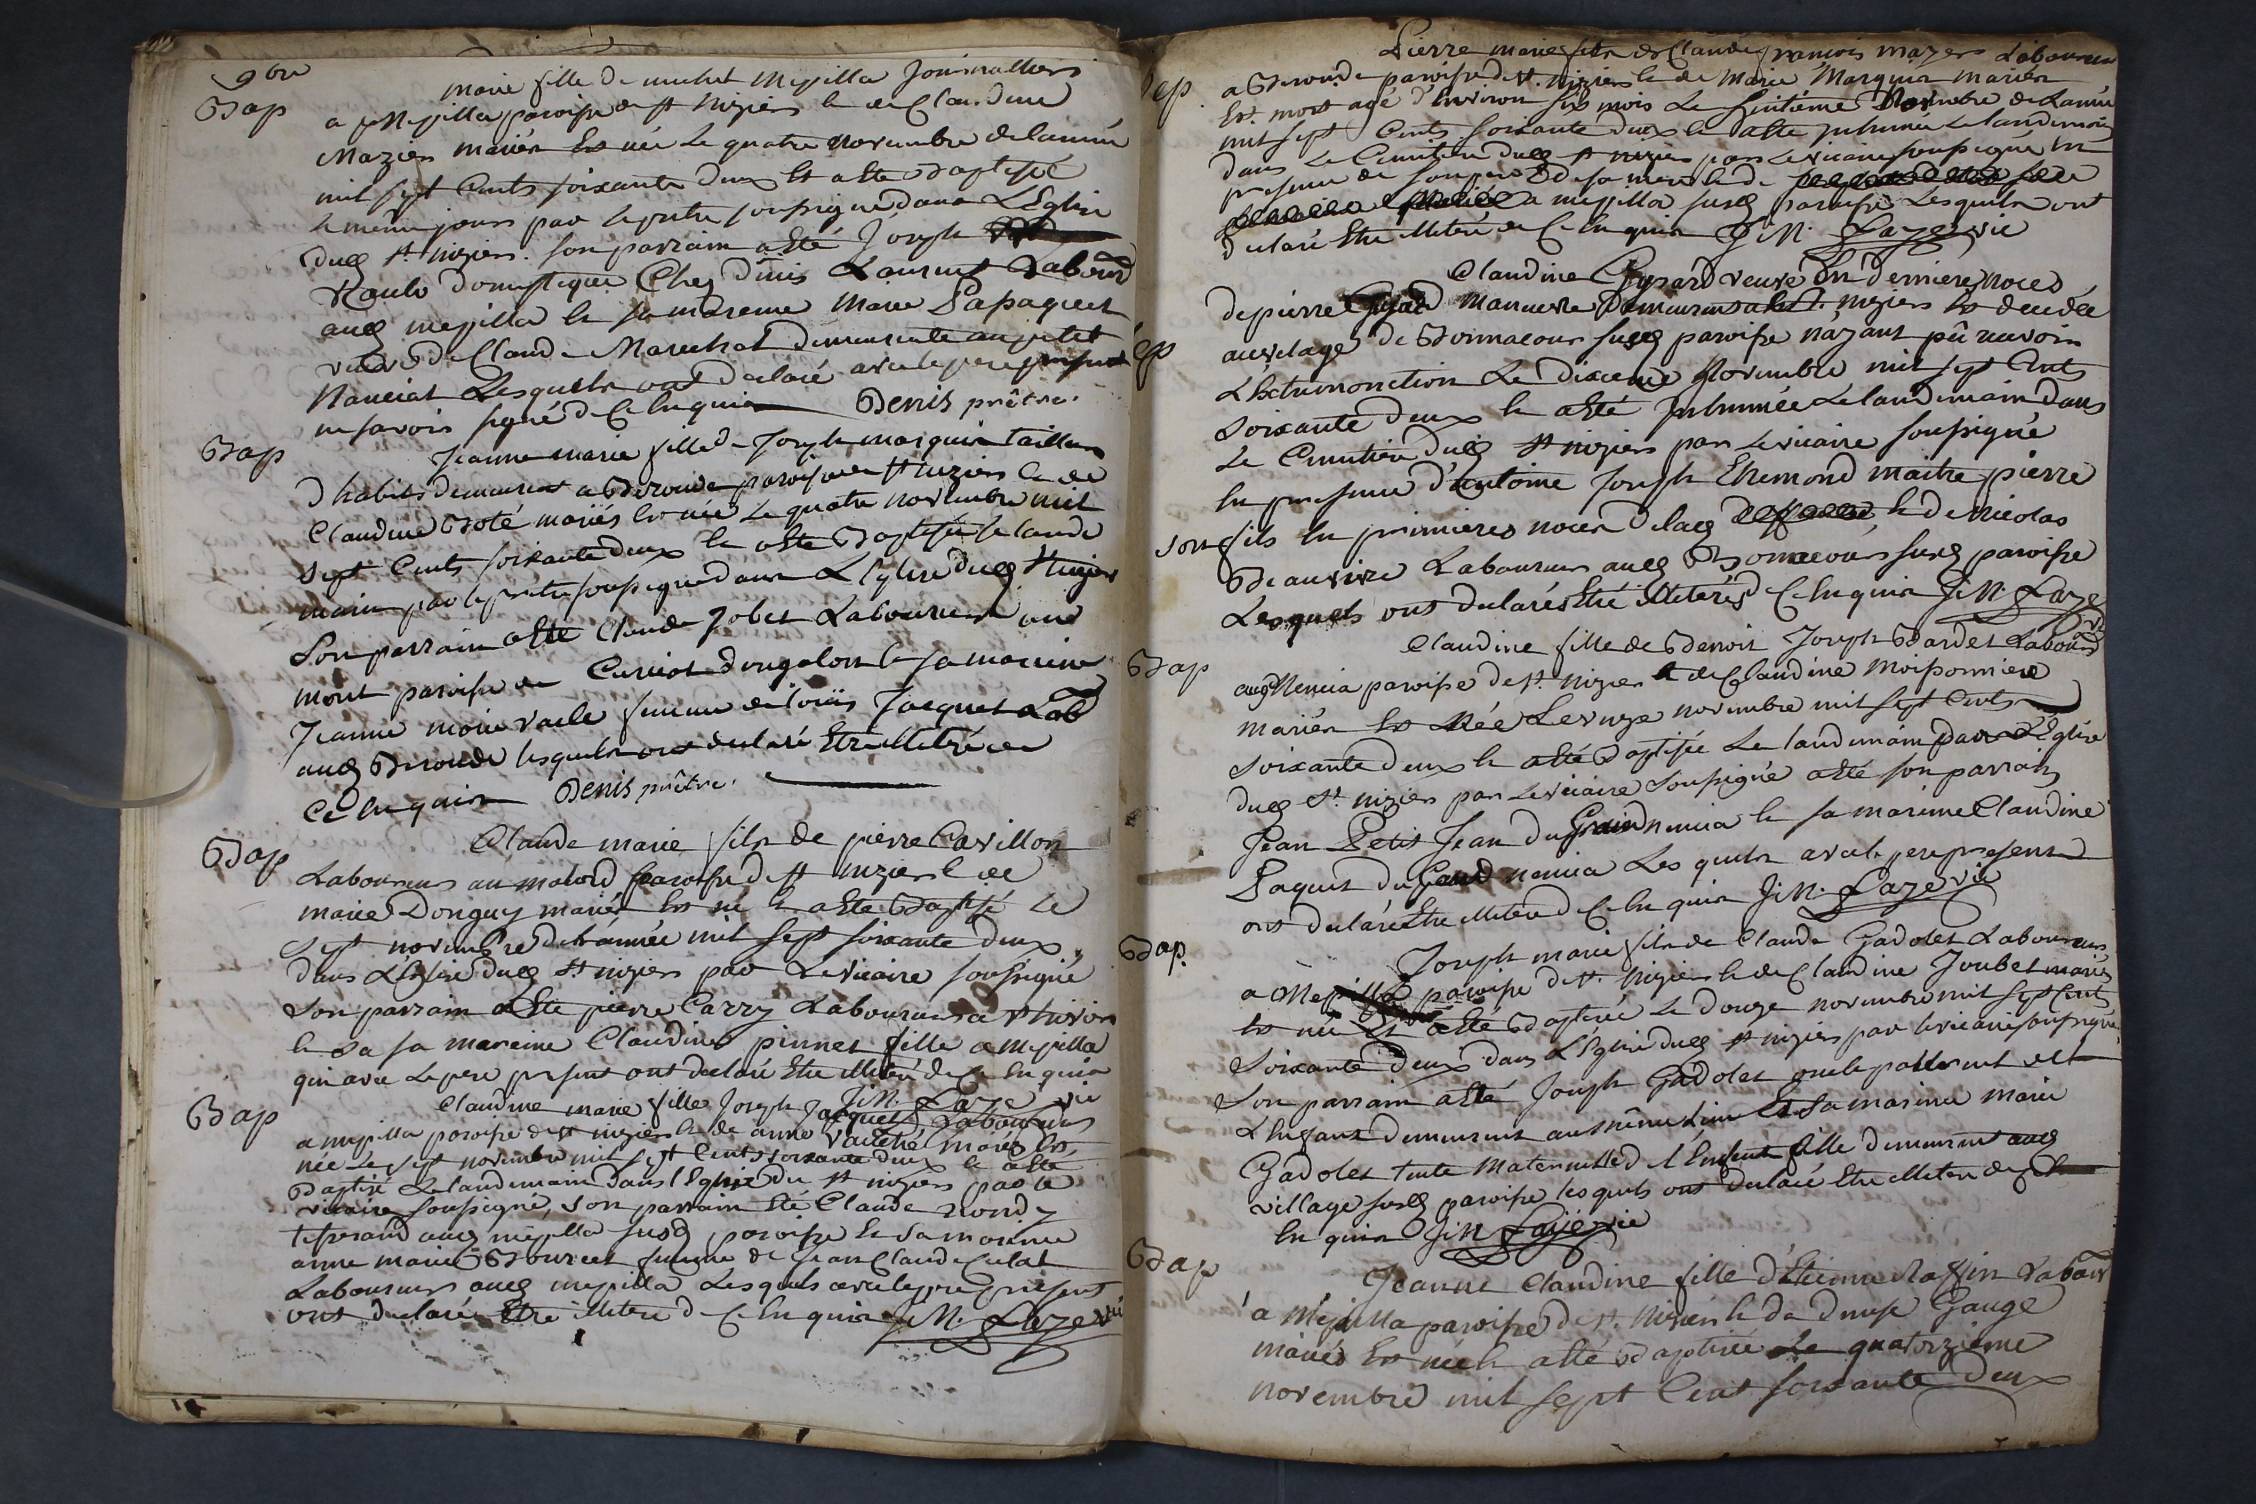 9bre
Bap
marie fille de michel Mepilla Journallier
a Mepilla paroisse de st nizier & de Claudine
Mazier mariés Est née Le quatre novembre de lannée
mil sept Cents soixante deux Et a Eté Baptisée
le même jour par le prêtre soussigné dans L'Eglise
dud st nizier. son parrain a Eté Joseph
domestique Chez Denis Laurent Labour
aud mepilla & sa mareine Marie Papaquet
veuve de Claude Marechal demeurante au petit
Nanciat Lesquels ont declaré avec le pere present
ne savoir signé de Ce Enquis Denis prêtre.
Bap
Jeanne marie fille de Joseph marquis tailleur
D habits demeurant a Beronde paroisse de st nizier & de
Claudine Boté mariés Est née Le quatre novembre mil
sept Cents soixante deux & a Eté Baptisée le lande
main par le prêtre soussigné dans L'Eglise dud st nizier
Son parrain a Eté Claude Jobet Laboureur
mont paroisse de Curciat dongalon & sa marraine
Jeanne marie femme de loüis Jacquet Lab
aud Beronde lesquels ont declaré Etre illitérés de
Ce Enquis Denis prêtre.
Bap
Claude marie fils de pierre Cavillon
Laboureur au molard paroisse de st nizier & de
marie Donguy mariés Est né & a Eté Baptisé Le
sept novembre de l'année mil sept soixante deux
dans L'Eglise dud st nizier par Le vicaire soussigné
Son parrain a Eté pierre Carry Laboureur a
& sa sa mareine Claudine pinnet fille a mepilla
qui avec Le pere present ont declaré Etre illiteré de Ce Enquis
J.M. Laze vic
Bap
Claudine marie fille Joseph Jacquet Laboureur
a mepilla paroisse de st nizier & de anne mariés Est
née Le sept novembre mil sept Cents soixante deux & a Eté
Baptisé Le landemain dans l'Eglise du st nizier par le
vicaire soussigné, son parrain Eté Claude
tisserand aud mepilla susd paroisse & sa marine
anne marie Bourcet femme de Jean Claude Culat
Laboureur aud mepilla Lesquels avec le pere present
ont declaré Etre illiteré de Ce Enquis J.M. Laze vic
Sep.
Pierre marie fils de Claude francois mazier Laboureur
a Beronde paroisse de st. nizier & de Marie Marquis mariés
Est mort agé d'Environ six mois Le huitième Novembre de Lannée
mil sept Cents soixante deux & a Eté Inhumé Le landemain
dans Le Cimitiere dud st nizier par Le vicaire soussigné En
presence de son pere & de sa mere & de
a mepilla susd paroisse Lesquels ont
declaré Etre illiteré de Ce Enquis J.M. Laze vic
Sep
Claudine veuve En derniere noces
de pierre manuvre demeurant a st. nizier Est decedée
au vilage de Bonnacour susd paroisse n'ayant pû recevoir
L'Extremonction Le dixeme Novembre mil sept Cents
soixante deux & a Eté Inhumée Le landemain dans
Le Cimitiere dud st nizier par Le vicaire soussigné
En presence d'antoine Joseph Eremond maitre pierre
son fils En premieres noces de lad & de Nicolas
Beauvire Laboureur aud Bonnacour susd paroisse
Lesquels ont declarés Etre illiterés de Ce Enquis J.M. Laze
vic
Bap
Claudine fille de Benoit Joseph Bardet Labour
aud Nencia paroisse de st. nizier & de Claudine Moissonniere
mariés Est Née Le vonze novembre mil sept Cents
soixante deux & a Eté Baptisée Le landemain dans L'Eglise
dud St. nizier par Le vicaire soussigné a Eté son parrain
Jean Petit Jean du Grand nencia & sa marine Claudine
Paquet du Grand nencia Lesquels avec le pere present
ont declaré Etre illiteré de Ce Enquis J.M. Laze vic
Bap.
Joseph marie fils de Claude Gadolet Laboureur
a Mepilla paroisse de st. nizier & de Claudine Joubet mariés
Est né Et a Eté Baptisé Le douze novembre mil sept Cents
soixante deux dans L'Eglise dud st nizier par le vicaire soussigné
Son parrain a Eté Joseph Gadolet oncle paternel de
L'Enfant demeurant au même Lieu Et sa marine Marie
Gadolet tente maternelle de l'Enfent fille demeurant aud
village susd paroisse lesquels ont declaré Etre illiteré de Ce
Enquis J.M. Laze vic
Bap
Jeanne Claudine fille d'Etienne Raffin Labour
a Mepilla paroisse de st. Nizier & de denise Gauge
mariés Est née & a Eté Baptisée Le quatorzieme
novembre mil sept Cent soixante deux